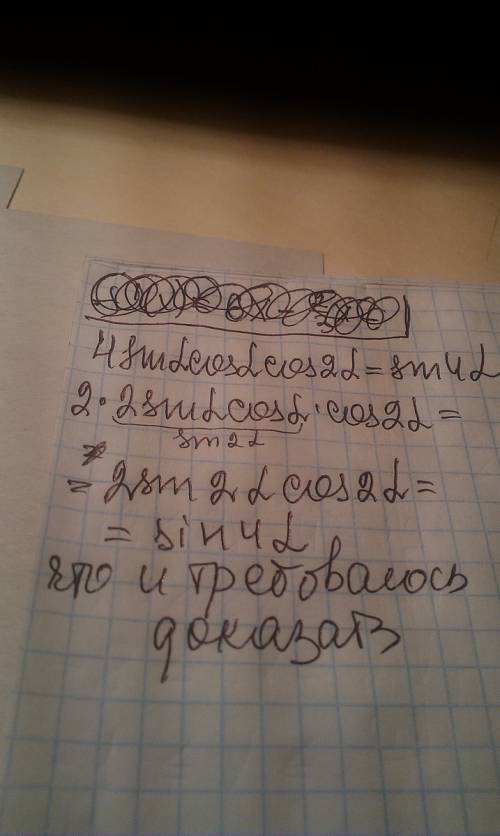 4sinαcosαcos2α=sin4α
2·2sinαcosα·cos2α=
sin2α
=2sin2αcos2α=
=sin4α
что и требовалось
доказать